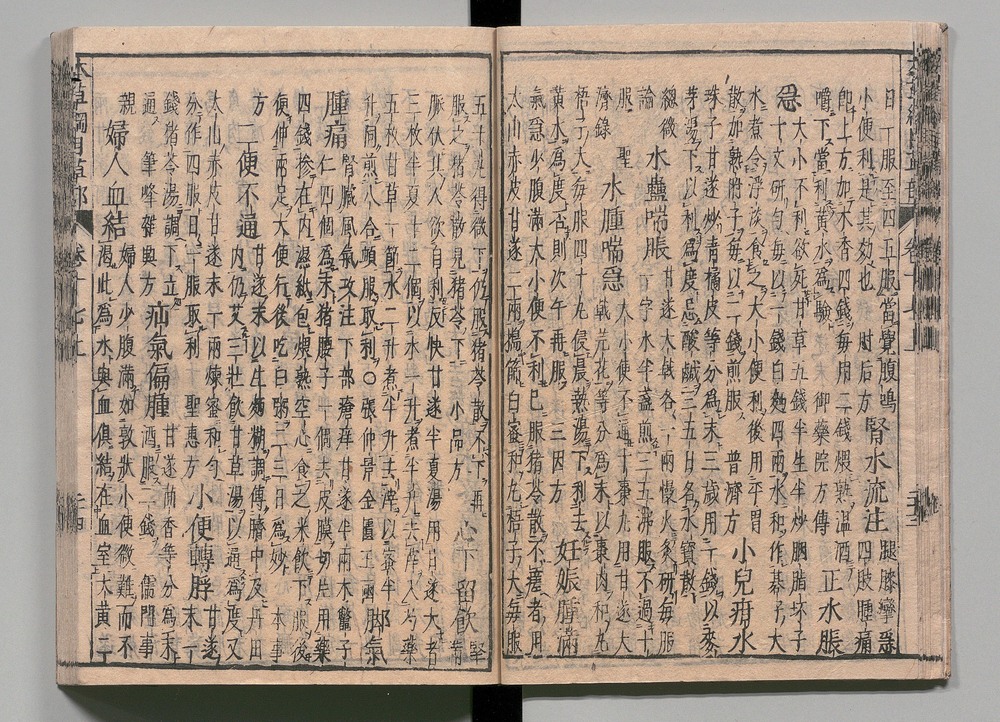 日一服至四五服當覺腹鳴
小便利是其効也 肘后方
腎水流注
腿膝攣急
四肢腫痛
即上方加木香四錢每用二錢煨熟溫酒
嚼下當利黃水爲驗 御藥院方
正水脹
急
大小便不利欲死甘草五錢半生半炒胭脂坏子
十文研勻每以一錢白麪四兩水和作棊子大
水煮令浮淡食之大小便利後用平胃
散加熟附子每以二錢煎服 普濟方
小兒疳水
珠子甘遂炒青橘皮等分爲末三歲用一錢以麥
芽湯下以利爲度忌酸鹹三五日名水寶散
總微
論
水蠱喘脹
甘遂大戟各一兩慢火炙研每服
一字水半盞煎三五沸服不過十
服 聖
濟錄
水腫喘急
大小便不通十棗丸用甘遂大
戟芫花等分爲末以棗肉和丸
梧子大每服四十丸侵晨熱湯下利去
黃水爲度否則次午再服 三因方
妊娠腫滿
氣急少腹滿大小便不利已服猪苓散不瘥者用
太山赤皮甘遂二兩擣篩白蜜和丸梧子大每服
五十丸得微下仍服猪苓散不下再
服之猪苓散見猪苓下 小品方
心下留飮
堅滿
脈伏其人欲自利反快甘遂半夏湯用甘遂大者
三枚半夏十二個以水一升煮半升去滓入芍藥
五枚甘草一節水二升煮半升去滓以蜜半
升同煎八合頓服取利○張仲景金匱玉函
脚氣
腫痛
腎臟風氣攻注下部瘡痒甘遂半兩木鱉子
仁四個爲末猪腰子一個去皮膜切片用藥
四錢摻在内濕紙包煨熟空心食之米飲下服後
便伸兩足大便行後吃白粥二三日爲妙 本事
方
二便不通
甘遂末以生麪糊調傅臍中及丹田
内仍艾三壯飲甘草湯以通爲度又
太山赤皮甘遂末一兩煉蜜和勻
分作四服日一服取利 聖惠方
小便轉脬
甘遂
末一
錢猪苓湯調下立
通 筆峰雜興方
疝氣偏腫
甘遂茴香等分爲末
酒服二錢 儒門事
親
婦人血結
婦人少腹滿如敦狀小便微難而不
渴此爲水與血俱結在血室大黃二
本草綱目草部 卷十七上 二十四